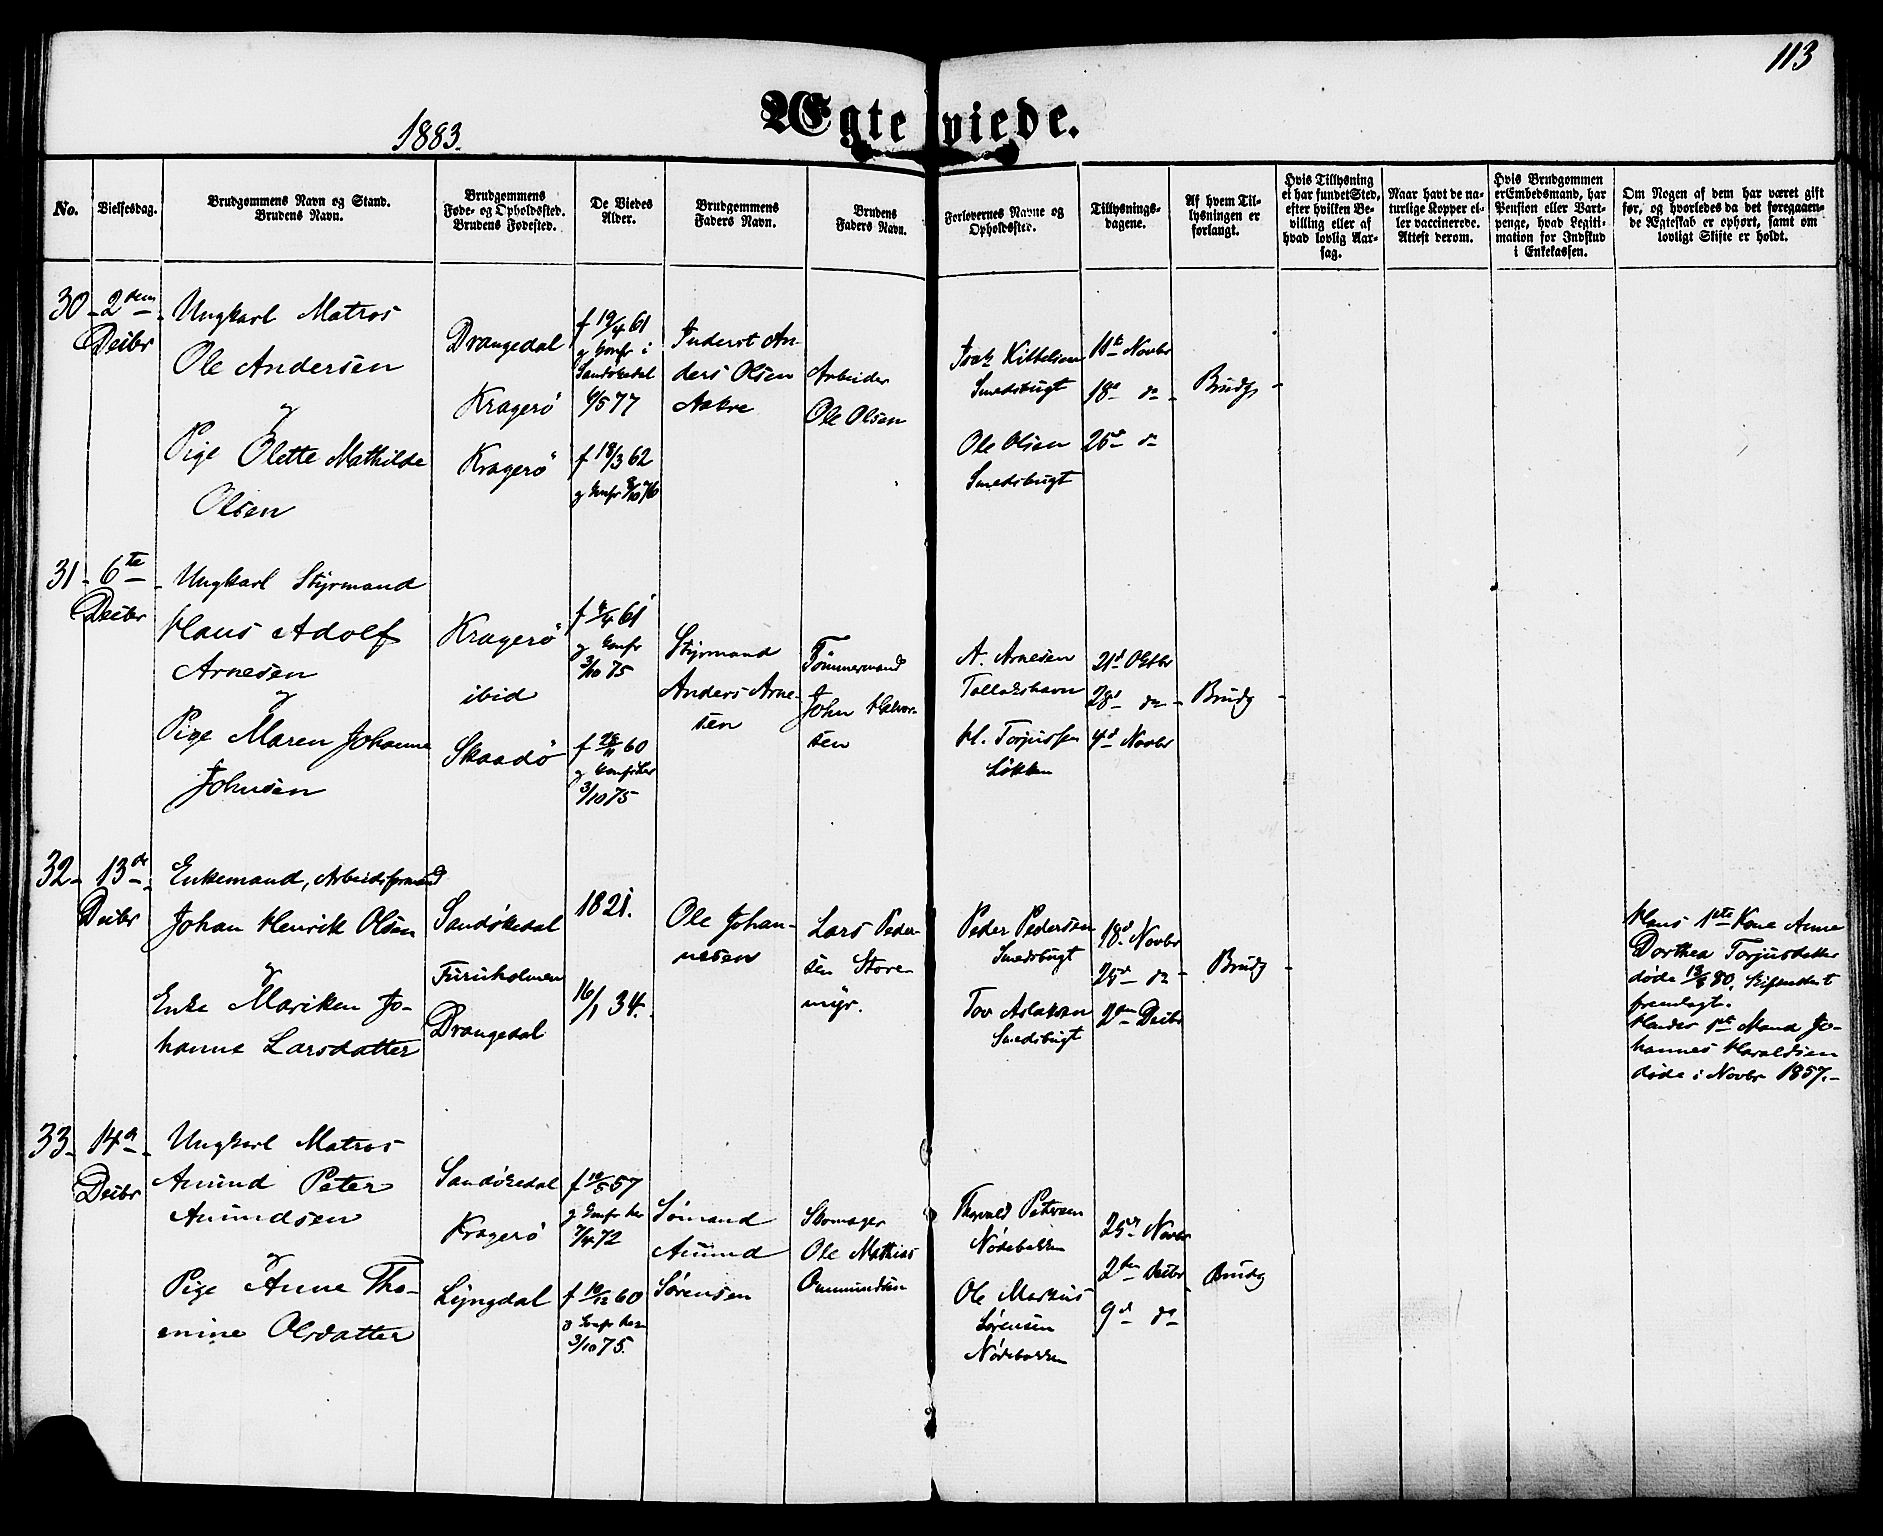 113
1883.
Ægteviede.
No.
Vielsesdag.
Brudgommens Navn og Stand.
Brudens Navn.
Brudgommens
Føde- og Opholdssted.
Brudens Fødested.
De Viedes
Alder.
Brudgommens
Faders Navn.
Brudens
Faders Navn.
Forlovernes Navne og
Opholdssted.
Tillysnings-
dagene.
Af hvem Til-
lysningen er
forlangt.
Hvis Tillysning
ei har fundet Sted,
efter hvilken Be-
villing eller af
hvad lovlig Aar-
sag.
Naar havt de na-
turlige Kopper el-
ler vaccinerede.
Attest derom.
Hvis Brudgommen
er Embedsmand, har
Pension eller Vart-
penge, hvad Legiti-
mation for Indskud
i Enkekassen.
Om Nogen af dem har været gift
før, og hvorledes da det foregaaen-
de Ægteskab er ophørt, samt om
lovligt Skifte er holdt.
30 - 2den -
Decbr
Ungkarl Matros
Ole Andersen
og
Pige Olette Mathilde
Olsen
Drangedal
Kragerö
Kragerö
f 19/4 61
og konfr i
Sandökedal
6/5 77
f 18/3 62
og konfr 8/10 76
Inderst An-
ders Olsen
Aakre
Arbeider
Ole Olsen
Isak Kittelsen
Smedsbugt
Ole Olsen
Smedsbugt
11te Novbr
18d do -
25d do
Brudg -
31 - 6te -
Decbr
Ungkarl Styrmand
Hans Adolf
Arnesen
og
Pige Maren Johanne
Johnsen
Kragerö
ibid
Skaadö
61
og konfr
3/10 75
f 28/11 60
og konfr her
3/10 75
Styrmand
Anders Arne-
sen
Tömmermand
John Halvor-
sen
A. Arnesen
Tallakshavn
H. Torjussen
Lökken
21d Oktbr
28d do -
4d Novbr
Brudg -
32 - 13de -
Decbr
Enkemand, Arbeidsformand
Johan Henrik Olsen
og
Enke Mariken Jo-
hanne Larsdatter
Sandökedal
Furuholmen
Drangedal
1821.
16/1 34.
Ole Johan-
nesen
Lars Peder-
sen Store-
myr.
Peder Pedersen
Smedsbugt
Tov Aslaksen
Smedsbugt
18d Novbr
25d do -
2den Decbr
Brudg -
Hans 1ste Kone Anne
Dorthea Torjusdatter
döde 80. Skifteattest
fremlagt.
Hendes 1ste Mand Jo-
hannes Haraldsen
döde i Novbr 1857. -
33 - 14d -
Decbr
Ungkarl Matros
Amund Peter
Amundsen
og
Pige Anne Tho-
mine Olsdatter
Sandökedal
Kragerö
Lyngdal
57
og konfr her
7/4 72
f 10/12 60
og konfr her
3/10 75.
Sömand
Amund
Sörensen
Skomager
Ole Mathias
Ommundsen
Thorvald Petersen
Nödebakken
Ole Markus
Sörensen
Nödebakken
25d Novbr
2den Decbr
9d do
Brudg